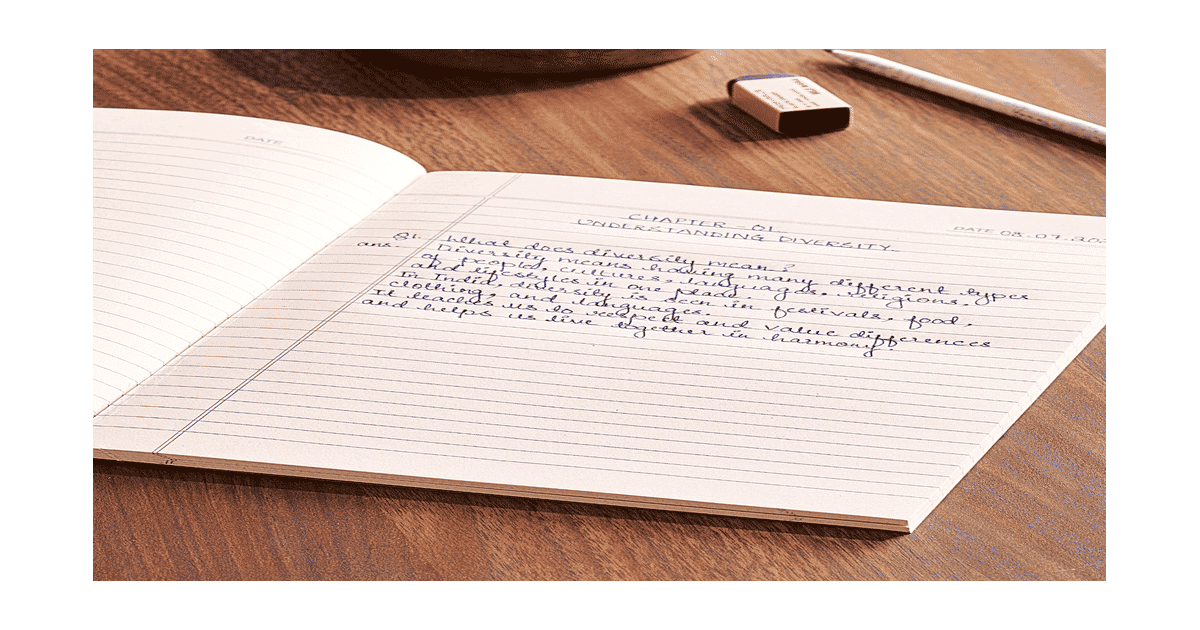 DATE
CHAPTER - 01
UNDERSTANDING DIVERSITY
DATE 08.07.202
Q1. What does diversity mean?
ans. Diversity means having many different types
of people, cultures, languages, religions.
and lifestyles in one place.
In India, diversity is seen in festivals, food,
clothing, and languages.
It teaches us to respect and value differences
and helps us live together in harmony.